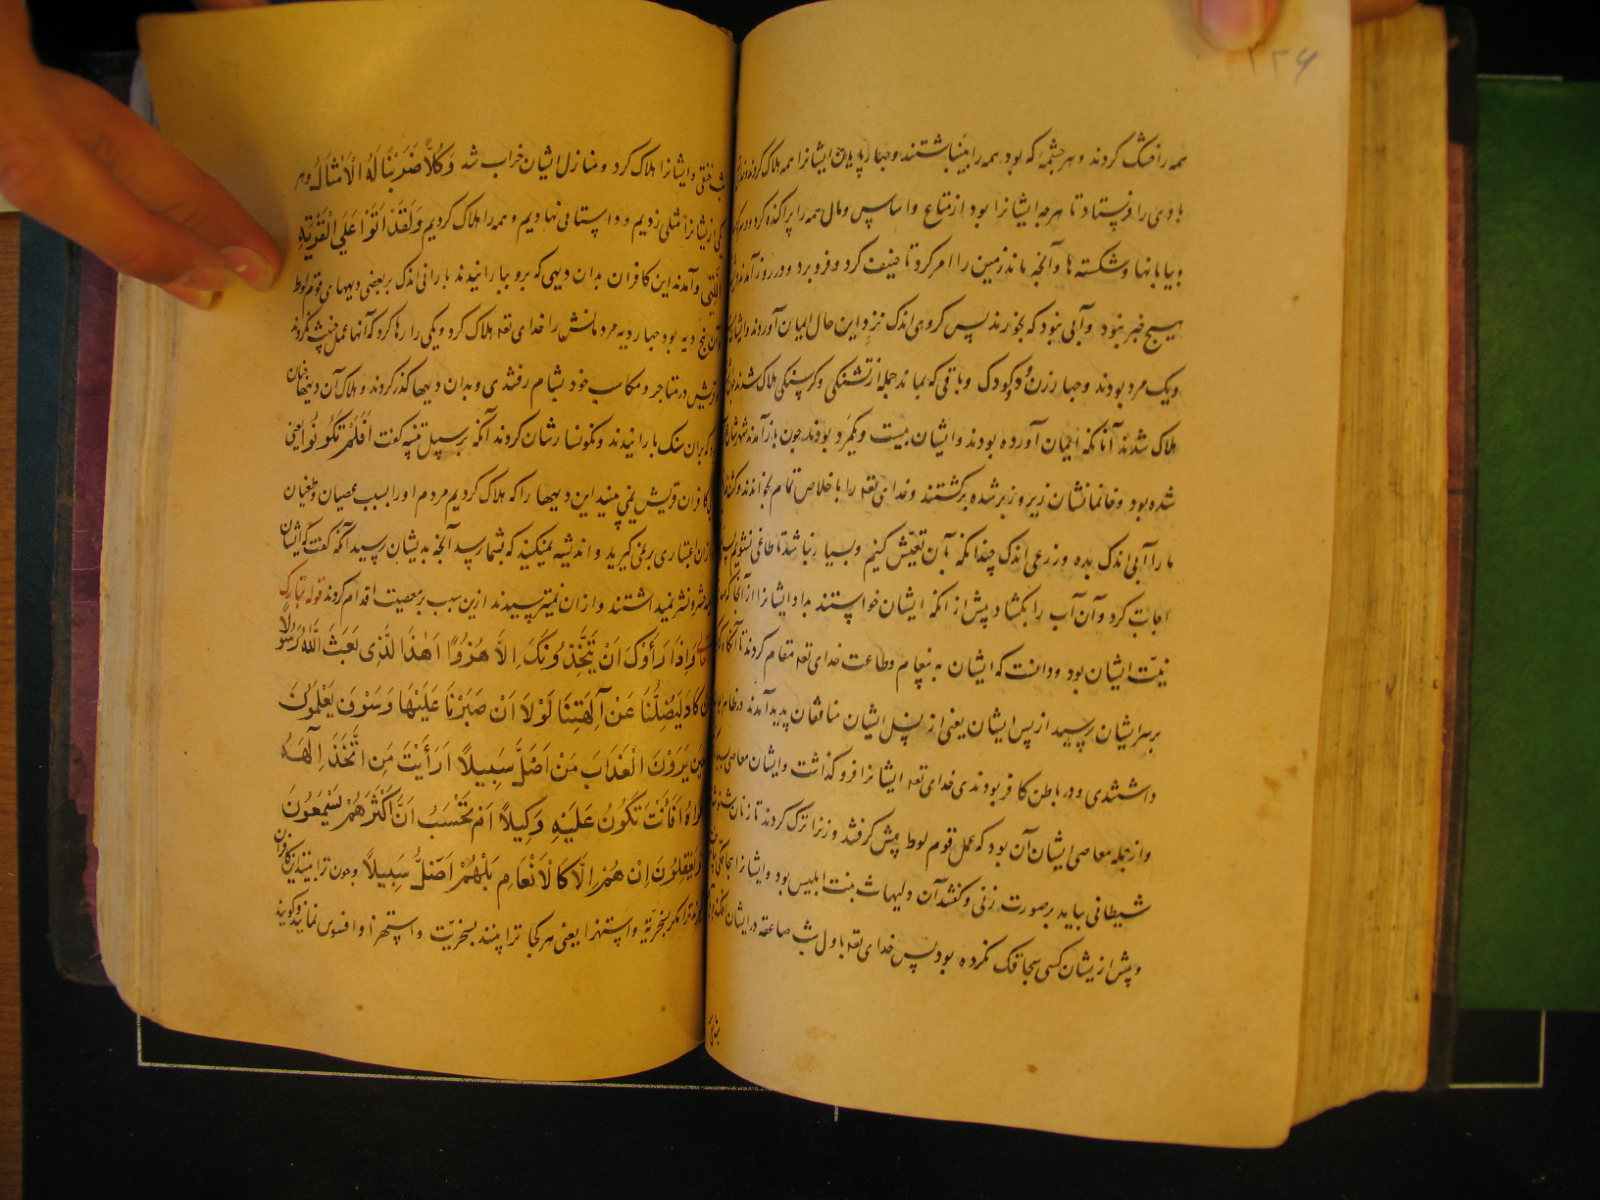 ۱۳۶
همه را خشک کردند و هر چشمه که بود همه را بینباشتند و چهارپایان ایشانرا همه هلاک کردند
بادی را فرستاد تا هرچه ایشانرا بود از متاع و اساس و مال همه را پراکنده کرد
و بیابانها و شکسته ها و آنچه ماند زمین را امر کرد تا خسف کرد و فرو برد و در روز آمدند
هیچ خبر نبود و آبی نبود که بخورند پس کروهی اندک نزد این حال ایمان آوردند
و یک مرد بودند و چهار زن و کودک و باقی که بماند جمله از تشنکی و کرسنکی هلاک شدند
هلاک شدند آنانکه ایمان آورده بودند و ایشان بیست و یکمرد بودند چون باز آمدند
شده بود و خانمانشان زیر و زبر شده برکشتند و خدای تعه را باخلاص تمام بخواندند
ما را آبی اندک بده و زرعی اندک چندانکه بآن تعیش کنیم و بسیار نباشد تا طاغی نشویم
اجابت کرد و آن آب را بکشاد پیش از آنکه ایشان خواستند بداد ایشانرا
نیت ایشان بود و دانست که ایشان به مقام وطاعت خدای تعه مقام کردند تا
بر سر ایشان رسید از پس ایشان یعنی از نسل ایشان منافقان پدید آمدند
داشتندی و در باطن کافر بودندی خدای تعه ایشانرا فرو کذاشت و ایشان معاصی
و از جمله معاصی ایشان آن بود که عمل قوم لوط پیش کرفتند و زنرا ترک کردند تا زنان
شیطانی بیاید بر صورت زنی و کفتند آن دلهاث بنت ابلیس بود و ایشانرا
و پیش از یشان کسی سحاقکی نکرده بود پس خدای تعه باول شب صاعقه در ایشان
ایشانرا هلاک کرد و منازل ایشان خراب شد وَكُلًّا ضَرَبْنَا لَهُ الْأَمْثَالَ و هر
یکی از یشانرا مثلی زدیم و داستانی نهادیم و همه را هلاک کردیم وَلَقَدْ اَتَوْا عَلَى الْقَرْيَةِ
الَّتِي و آمدند این کافران بدان دیهی که برو ببارانیدند بارانی اندک بعضی دیههای قوم لوط
و آن پنج دیه بود چهار دیه مردمانش را خدای تعه هلاک کرد و یکی را رها کرد که آنها عمل خبیث نکردند
و قریش در متاجر و مکاسب خود بشام رفتندی و بدان دیهها کذر کردند و هلاک آن دیهها چنان
بود که بران سنک بارانیدند و نکونسارشان کردند آنکه بر سبیل تنبیه کفت اَفَلَمْ يَكُونُوا یعنی
کافران قریش نمی بینید این دیهها را که هلاک کردیم مردم او را بسبب عصیان و طغیان
ازان اعتباری بر نمی کیرید و اندیشه نمیکنید که بشما رسد آنچه بدیشان رسید آنکه کفت که ایشان
نشر نمیداشتند و ازان نمیترسیدند ازین سبب بر معصیت اقدام کردند قوله تبارک
وتعالی وَاِذَا رَاَوْكَ اَنْ يَتَّخِذُونَكَ اِلَّا هُزُوًا اَهٰذَا الَّذِى بَعَثَ اللّٰهُ رَسُولًا
اِنْ كَادَ لَيُضِلُّنَا عَنْ آلِهَتِنَا لَوْلَا اَنْ صَبَرْنَا عَلَيْهَا وَسَوْفَ يَعْلَمُونَ
حِينَ يَرَوْنَ الْعَذَابَ مَنْ اَضَلُّ سَبِيلًا اَرَاَيْتَ مَنِ اتَّخَذَ اِلٰهَهُ
هَوَاهُ اَفَاَنْتَ تَكُونُ عَلَيْهِ وَكِيلًا اَمْ تَحْسَبُ اَنَّ اَكْثَرَهُمْ يَسْمَعُونَ
اَوْ يَعْقِلُونَ اِنْ هُمْ اِلَّا كَالْاَنْعَامِ بَلْ هُمْ اَضَلُّ سَبِيلًا و چون ترا بینند این کافران
ترا مکر بسخریة و استهزا یعنی هر کجا ترا بینند بسخریت و استهزا و افسوس نمایند و کویند